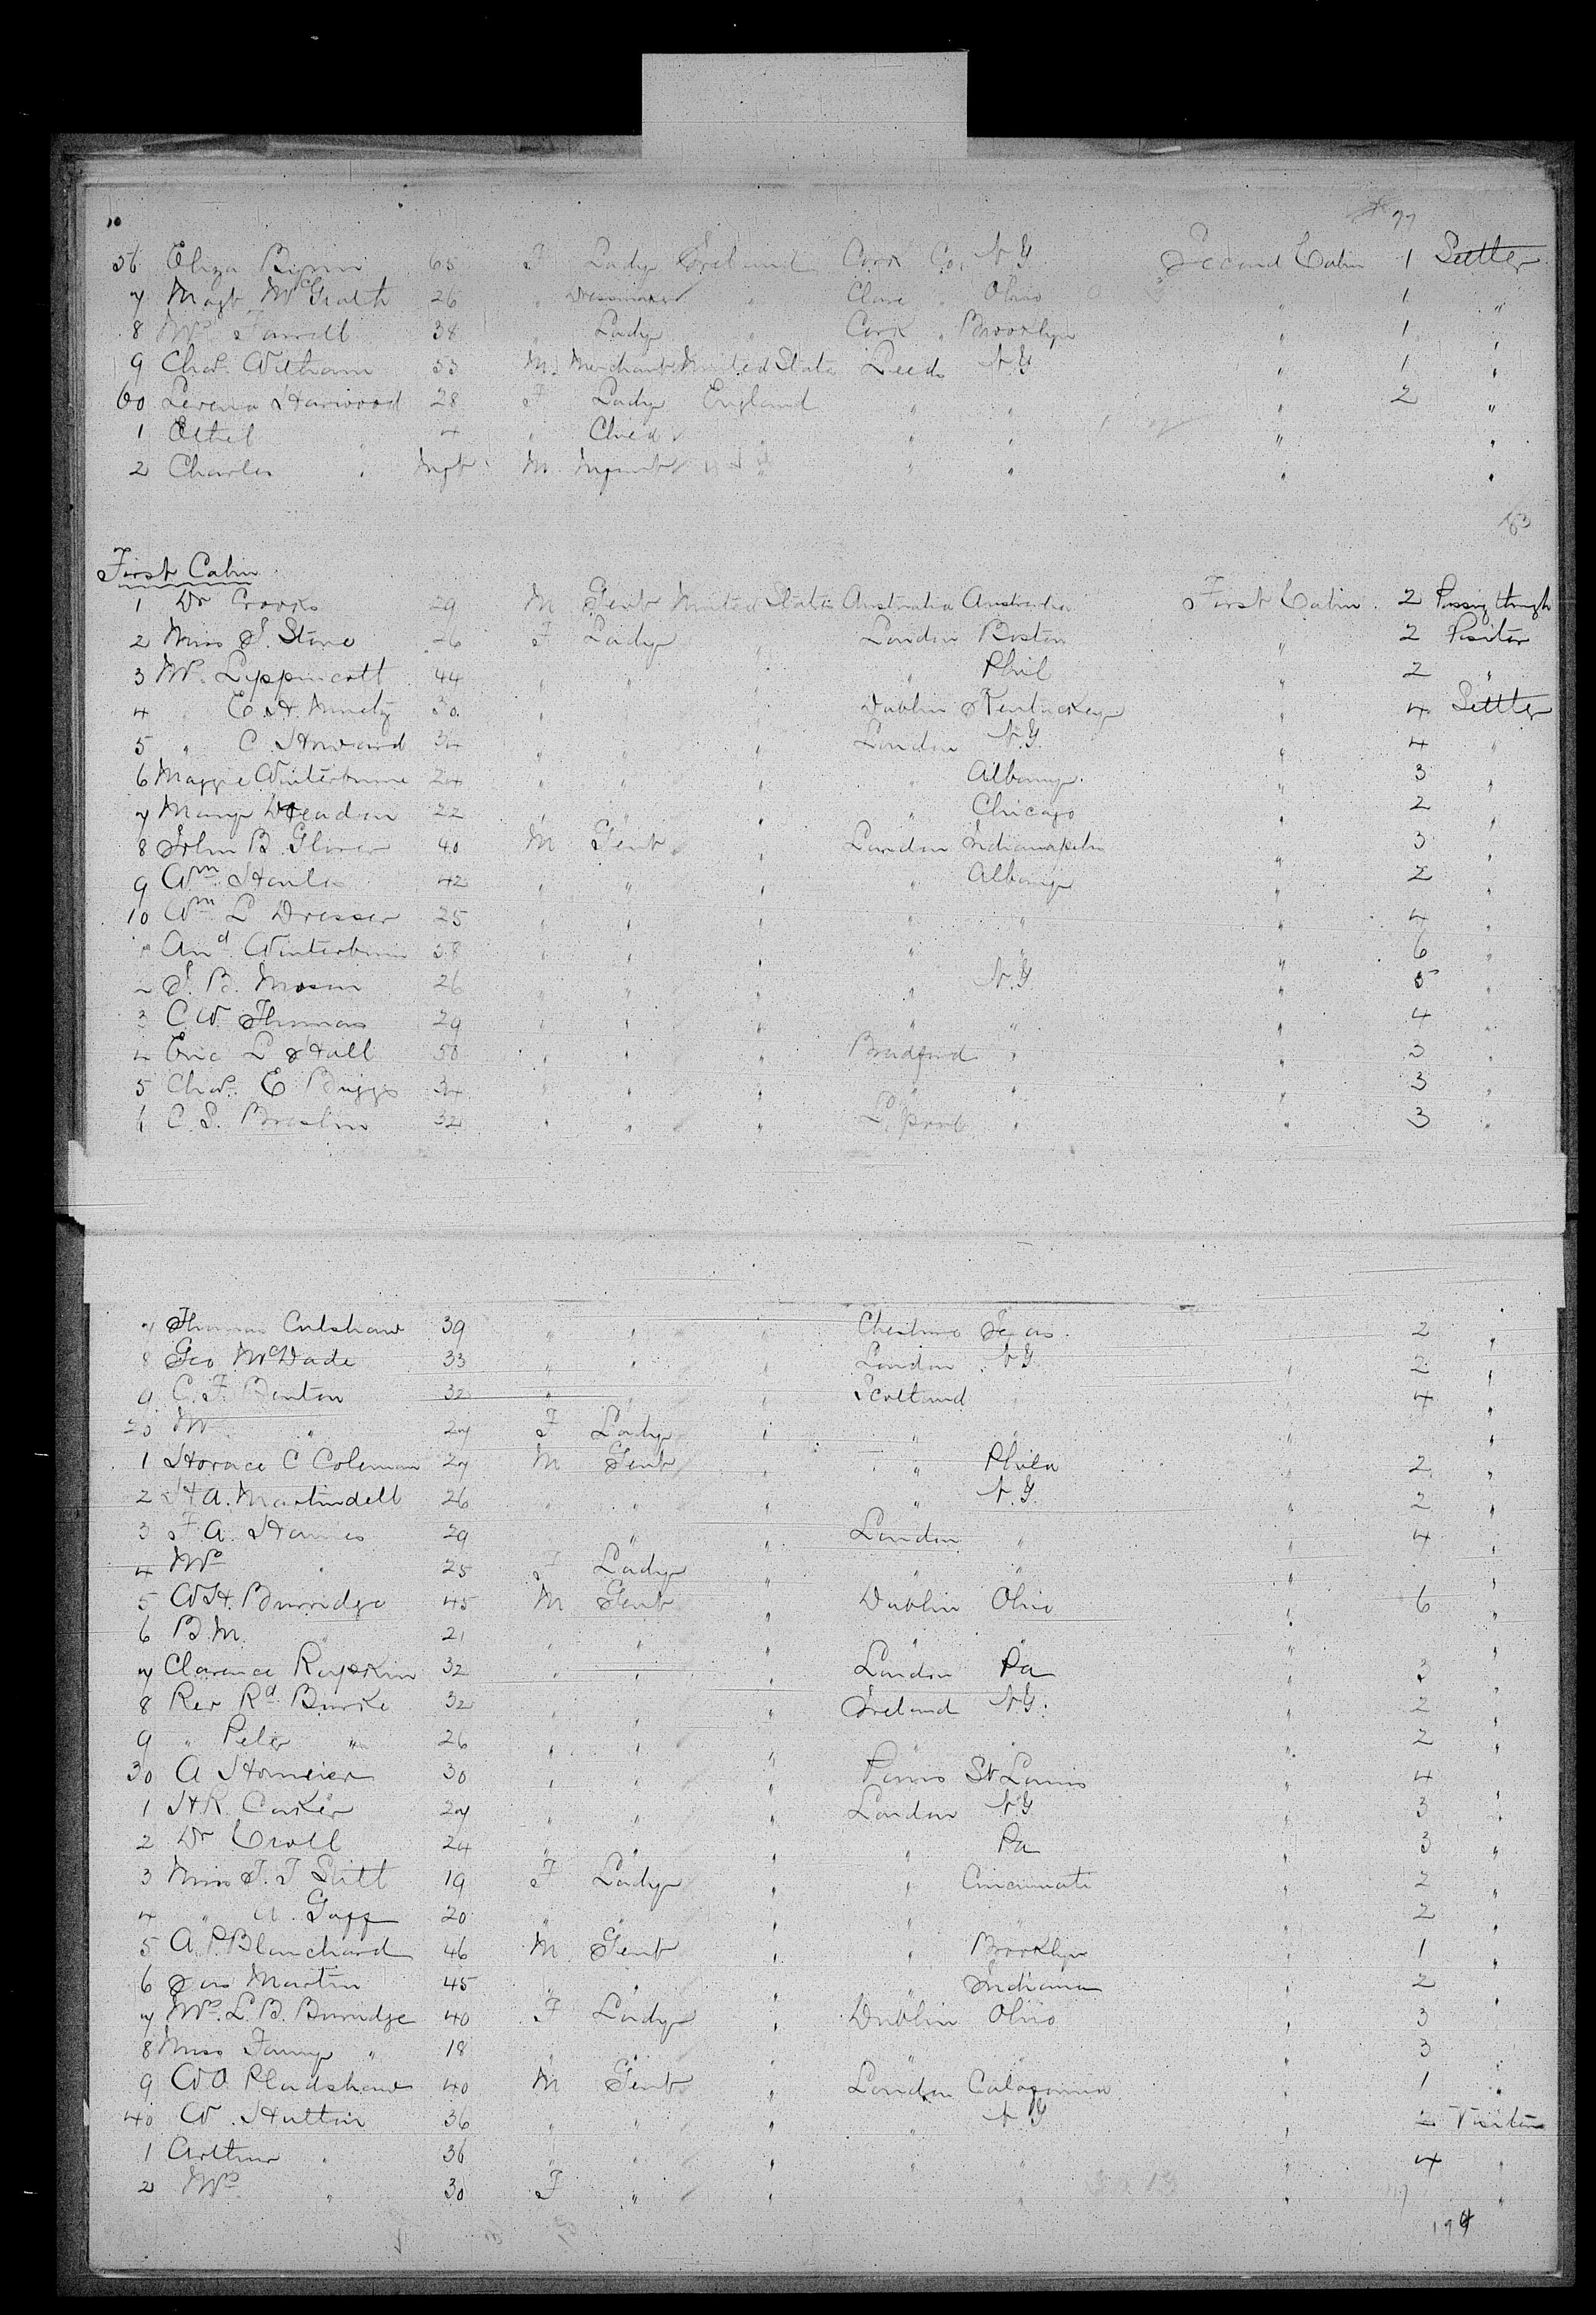 77
56 Eliza 65 F Lady Ireland Cork Co. N.Y. Second Cabin 1 Settler
7 Magt McGrath 26 " Dressmaker " Clare " Ohio " 1 "
8 Mrs Farrell 38 " Lady " Cork " Brooklyn " 1 "
9 Chas. Witham 53 M Merchant United States Leeds N.Y. " 1 "
60 Harwood 28 F Lady England " " " 2 "
1 Ethel " 4 " Child " " " " "
2 Charles " Inft M Infant " " " " "
63
First Cabin
1 Dr Crooks 29 M Gent United States Australia Australia First Cabin 2 Passing through
2 Miss S. Stone F Lady " London Boston " 2 Visitor
3 Mrs Lippincott 44 " " " " Phil " 2 "
4 " E.H. 30 " " Dublin Kentucky " 4 Settler
5 " C. Howard 34 " " " London N.Y. " 4 "
6 Maggie Winterburne 24 " " " " Albany " 3 "
7 22 " " " " Chicago " 2 "
8 John B. Glover 40 M Gent " London Indianapolis " 3 "
9 Wm 42 " " " " Albany " 2 "
10 Wm L Dresser 25 " " " " " " 4 "
1 And Winterburn 38 " " " " " " 6 "
2 S. B. 26 " " " " N.Y. " 5 "
3 C W. Thomas 29 " " " " " " 4 "
4 Eric L Hall 50 " " " Bradford " " 3 "
5 Chas. E Briggs 34 " " " " " " 3 "
6 C. S. Breslin 32 " " " L'pool " " 3 "
7 Thomas Culshaw 39 " " " Cheshire Texas " 2 "
8 Geo McDade 33 " " " London N.Y. " 2 "
9 C. F. Benton 32 " " " Scotland " " 4 "
20 " 27 F Lady " " " " "
1 Horace C Coleman 27 M Gent " " Phila " 2 "
2 H A. Martindell 26 " " " " N.Y. " 2 "
3 F A. 29 " " " London " " 4 "
4 Mrs " 25 F Lady " " " " "
5 W H. Burridge 45 M Gent " Dublin Ohio " 6 "
6 B M. " 21 " " " " " " "
7 Clarence 32 " " " London Pa " 3 "
8 Rev Rd Burke 32 " " " Ireland N.Y. " 2 "
9 " Peter " 26 " " " " " " 2 "
30 A 30 " " " Paris St Louis " 4 "
1 H.R. 27 " " " London N.Y " 3 "
2 Dr Croll 24 " " " " Pa " 3 "
3 Miss J. T Stitt 19 F Lady " " Cincinnati " 2 "
4 " A. Gaff 20 " " " " " " 2 "
5 A. P. Blanchard 46 M Gent " " Brooklyn " 1 "
6 Jas Martin 45 " " " " Indiana " 2 "
7 Mrs. L. B. Burridge 40 F Lady " Dublin Ohio " 3 "
8 Miss Fanny " 18 " " " " " " 3 "
9 W O. 40 M Gent " London California " 1 "
40 W. Hutton 36 " " " " N Y " Visitor
1 Arthur " 36 " " " " " " 4 "
2 Mrs " 30 F " " " " "